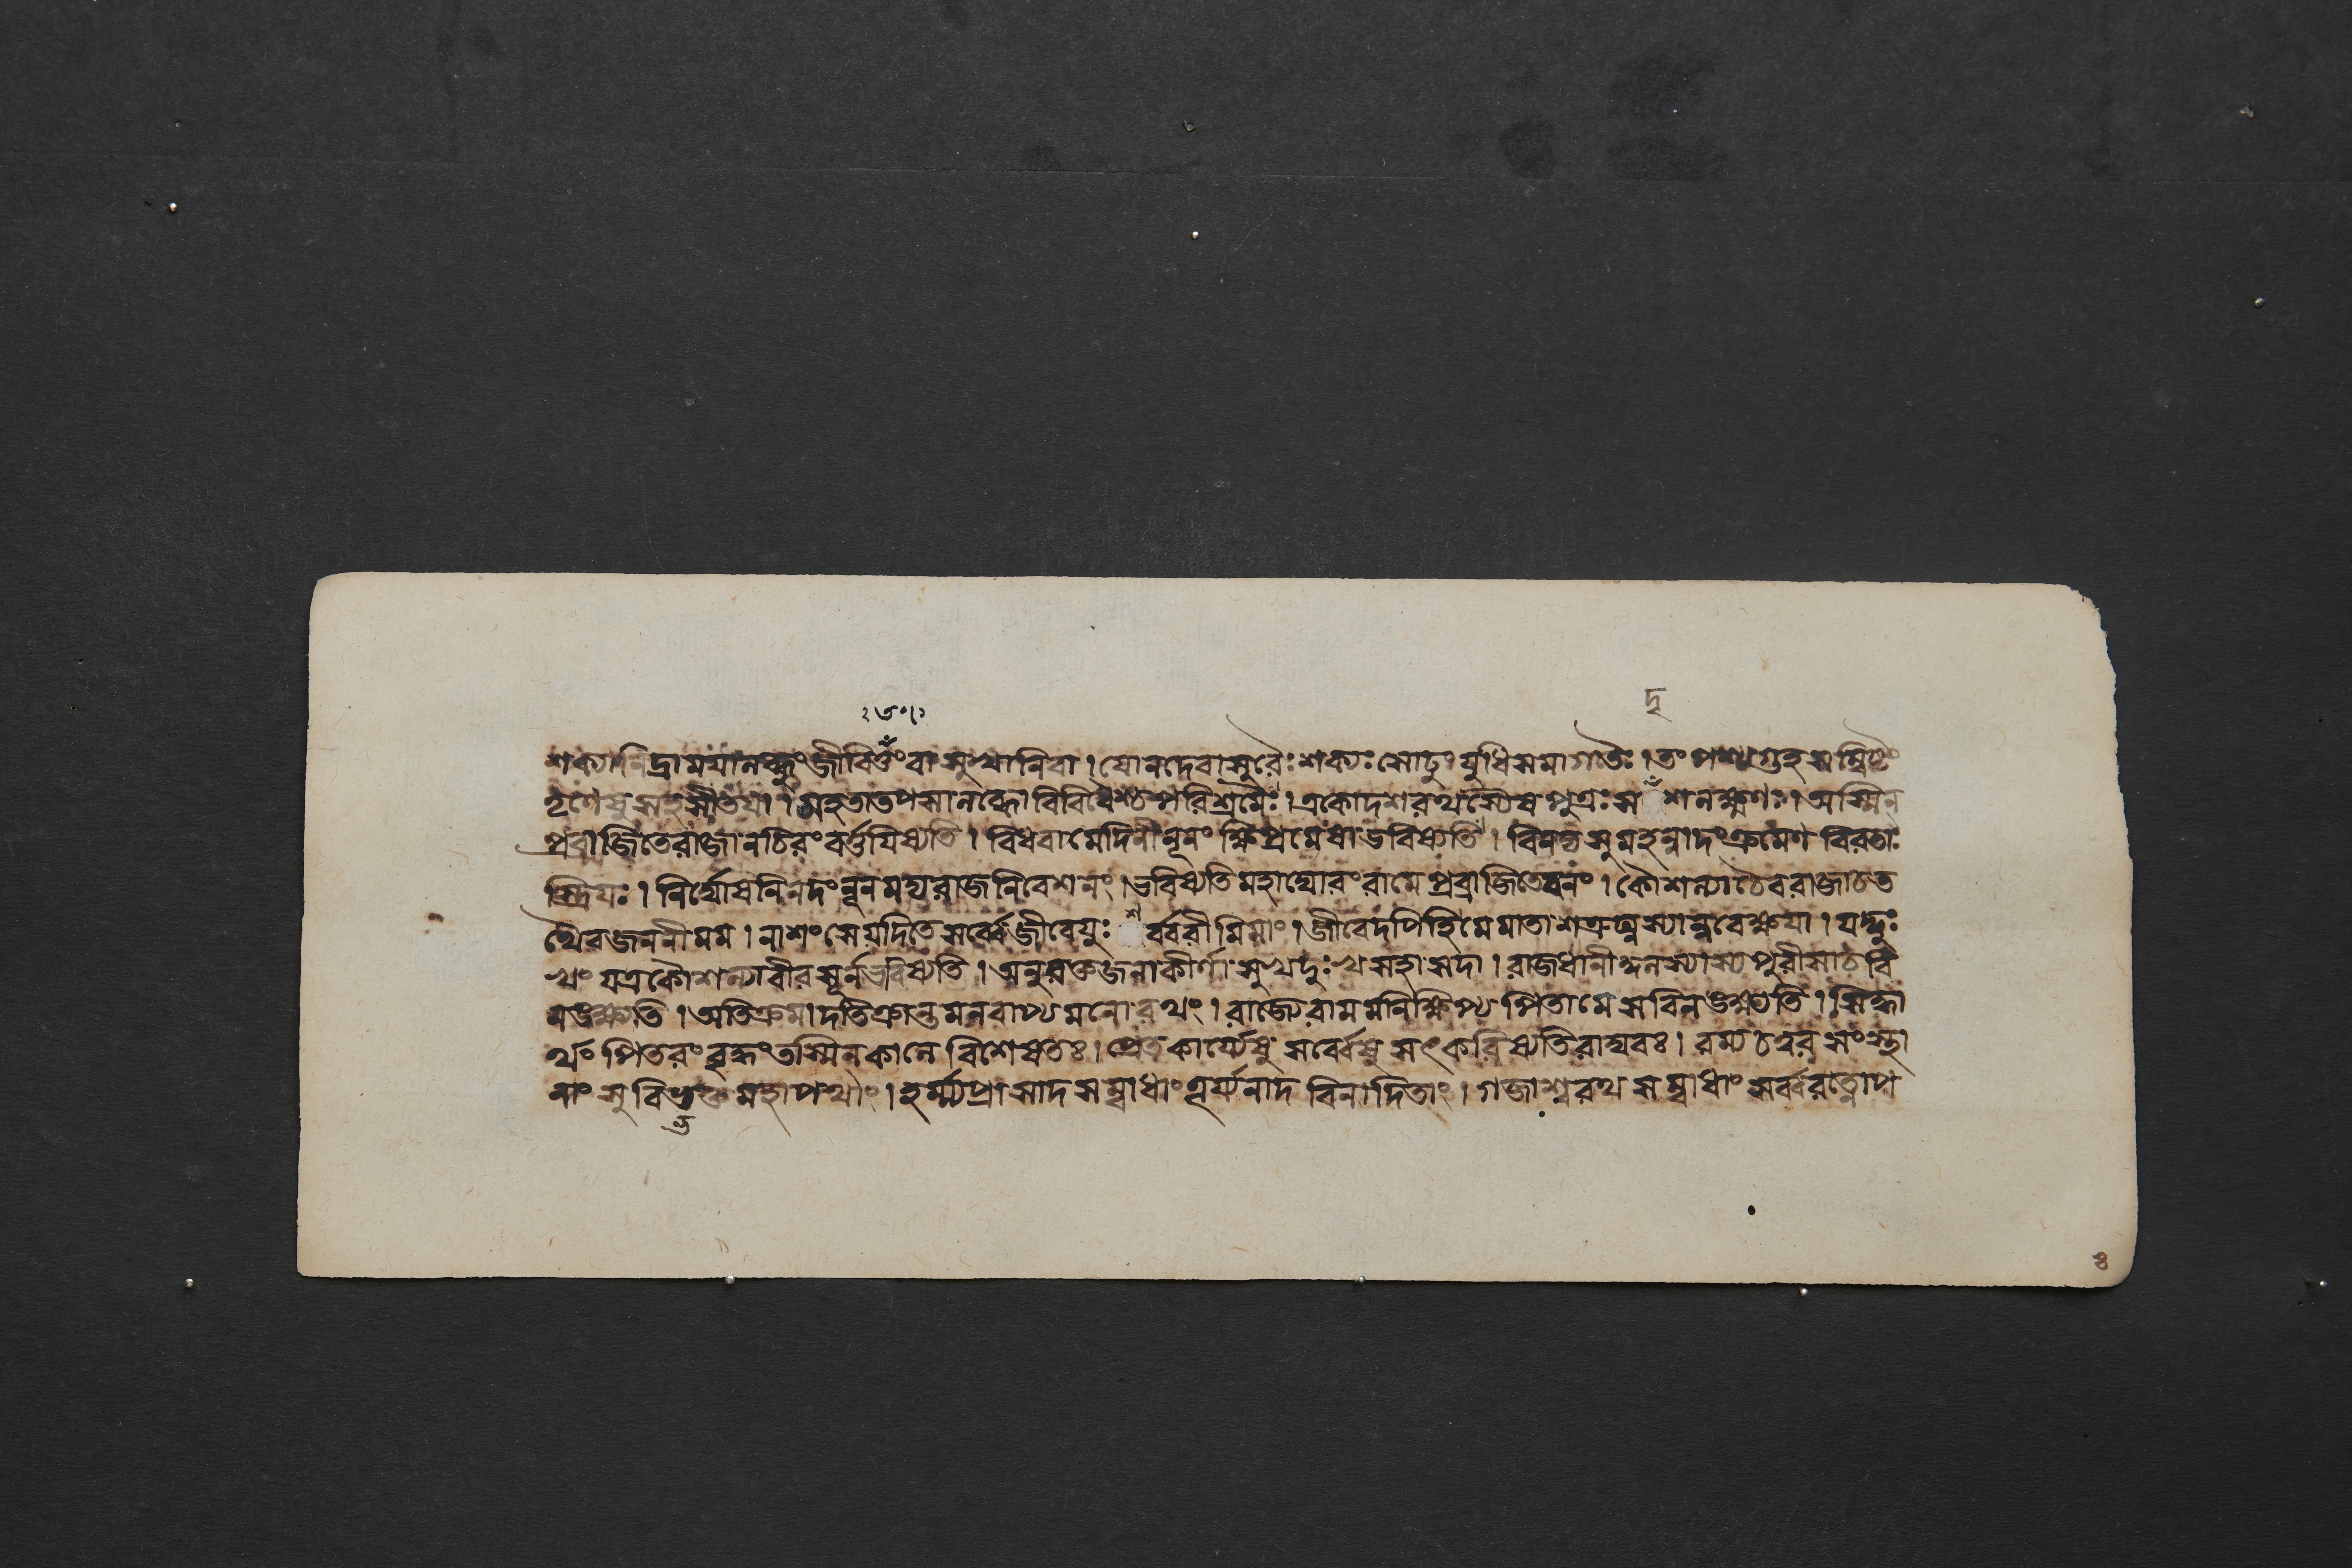 ২৬৭
দৃ
শক্যানিদ্রাময়ালব্ধুংজীবিতুংবাসুখানিবা।যোনদেবাসুরৈঃশক্যঃসোঢুংযুধিসমাগতৈঃ।তংপশ্যগুহসম্বিষ্টং
তৃণেষুসহসীতয়া।মহতাতপসালব্ধোবিবিধৈশ্চপরিশ্রমৈঃ।একোদশরথস্যৈষপুত্রঃস শলক্ষণঃ।অস্মিন্
প্রব্রাজিতেরাজানচিরংবর্ত্তয়িষ্যতি।বিধবামেদিনীনূনংক্ষিপ্রমেষাভবিষ্যতি।বিনদ্যসুমহানাদংশ্রমেণবিরতাঃ
স্ত্রিয়ঃ।নির্ঘোষনিনদংনূনমদ্যরাজনিবেশনং।ভবিষ্যতিমহাঘোরংরামেপ্রব্রাজিতেবনং।কৌশল্যাচৈবরাজাচত
থৈবজননীমম।নাশংসেয়দিতেসর্ব্বেজীবেয়ুঃশর্ব্বরীমিমাং।জীবেদপিহিমেমাতাশত্রুঘ্নস্যান্ববেক্ষয়া।যদ্দুঃ
খংযত্রকৌশল্যাবীরসূর্নভবিষ্যতি।অনুরক্তজনাকীর্ণাসুখদুঃখসহাসদা।রাজধানী পুরীসাচবি
নঙ্ক্ষ্যতি।অতিক্রমাদতিক্রান্তমনবাপ্যমনোরথং।রাজ্যেরামমনিক্ষিপ্যপিতামেসবিনঙ্ক্ষ্যতি।সিদ্ধা
র্থাঃপিতরংবৃদ্ধংতস্মিন্কালেবিশেষতঃ।প্রেতকার্য্যেষুসর্ব্বেষুসৎকরিষ্যতিরাঘবঃ।রম্যচত্বরসংস্থা
নাংসুবিভক্তমহাপথাং।হর্ম্ম্যপ্রাসাদসম্বাধাংতূর্য্যনাদবিনাদিতাং।গজাশ্বরথসম্বাধাংসর্ব্বরত্নোপ
ভ